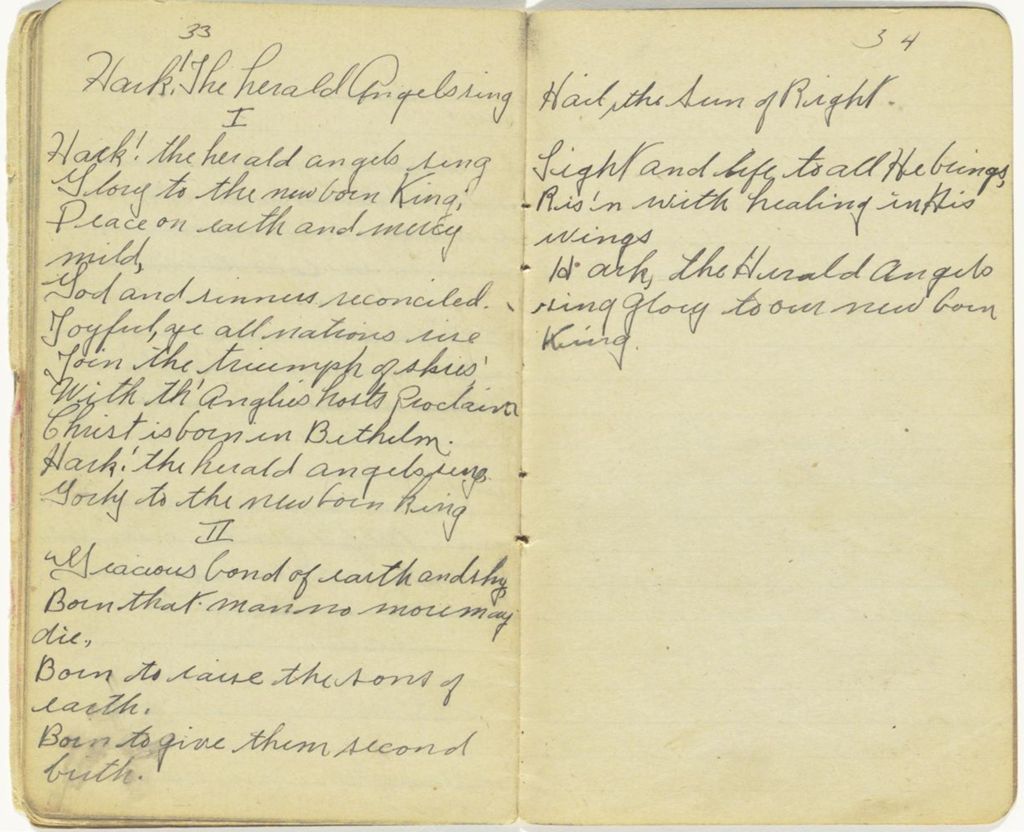 33
Hark! The herald Angels sing
I
Hark! the herald angels sing
Glory to the new born King;
Peace on earth and mercy
mild,
God and sinners reconciled.
Joyful, ye all nations rise
Join the triumph of skies'
With th' Anglies hosts proclaim
Christ is born in Bethelm.
Hark! the herald angels sing
Gorly to the new born King
II
"Gracious bond of earth and sky
Born that man no more may
die,
Born to raise the sons of
earth.
Born to give them second
birth.
34
Hail, the Sun of Right.
Light and life to all He brings,
Ris'n with healing in His
wings
Hark, the Herald Angels
sing glory to our new born
King.